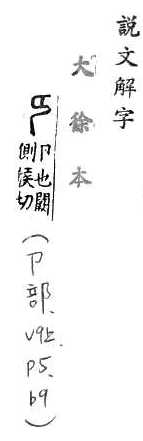 說文解字
大徐本
卩也闕
側候切
(卩部、V9上、P5、b9)